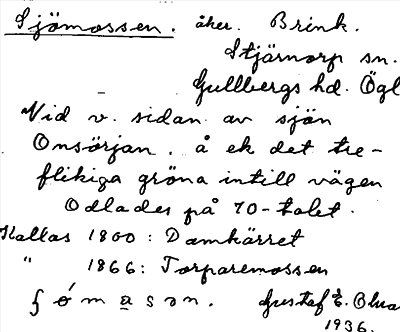 Sjömossen. åker. Brink.
Stjärnorp sn.
Gullbergs hd. Ögl
Vid v. sidan av sjön
Onsörjan. å ek det tre-
flikiga gröna intill vägen
Odlades på 70-talet.
Kallas 1800: Damkärret
" 1866: Torparemossen
Gustaf E.
1936.